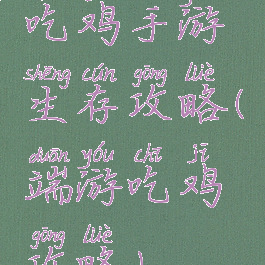 吃鸡手游
shēng cún gōng lüè
生存攻略(
duān yóu chī jī
端游吃鸡
gōng lüè
攻略)